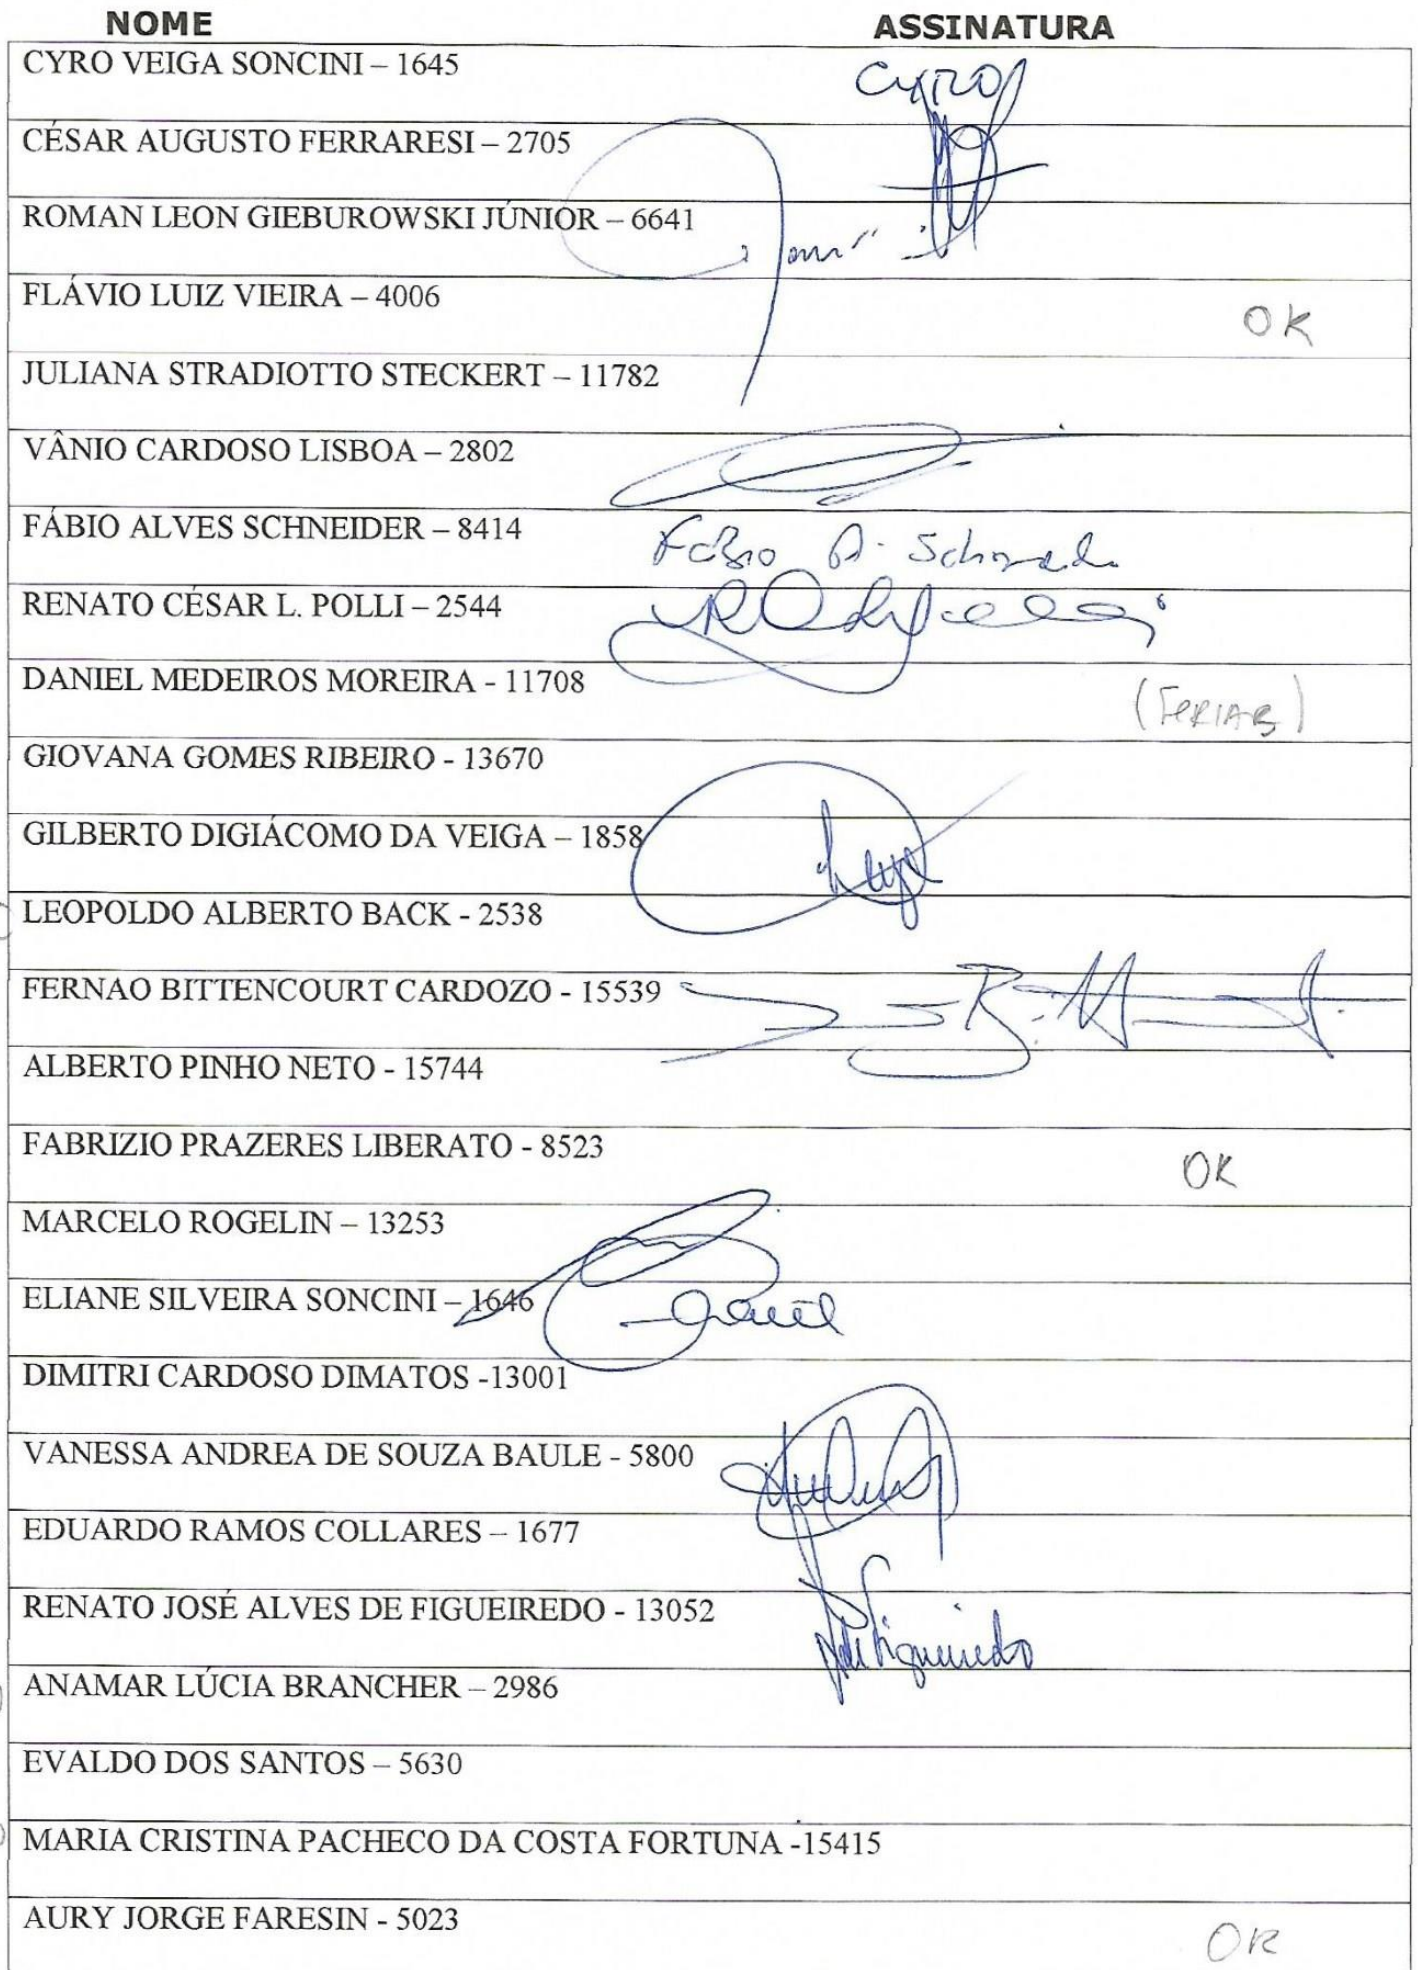 NOME ASSINATURA
CYRO VEIGA SONCINI – 1645 CYRO
CÉSAR AUGUSTO FERRARESI – 2705
ROMAN LEON GIEBUROWSKI JÚNIOR – 6641
FLÁVIO LUIZ VIEIRA – 4006 OK
JULIANA STRADIOTTO STECKERT – 11782
VÂNIO CARDOSO LISBOA – 2802
FÁBIO ALVES SCHNEIDER – 8414 Fábio A.
RENATO CÉSAR L. POLLI – 2544
DANIEL MEDEIROS MOREIRA - 11708 (FERIAS)
GIOVANA GOMES RIBEIRO - 13670
GILBERTO DIGIÁCOMO DA VEIGA – 1858
LEOPOLDO ALBERTO BACK - 2538
FERNAO BITTENCOURT CARDOZO - 15539
ALBERTO PINHO NETO - 15744
FABRIZIO PRAZERES LIBERATO - 8523 OK
MARCELO ROGELIN – 13253
ELIANE SILVEIRA SONCINI – 1646
DIMITRI CARDOSO DIMATOS -13001
VANESSA ANDREA DE SOUZA BAULE - 5800
EDUARDO RAMOS COLLARES – 1677
RENATO JOSÉ ALVES DE FIGUEIREDO - 13052 Figueiredo
ANAMAR LÚCIA BRANCHER – 2986
EVALDO DOS SANTOS – 5630
MARIA CRISTINA PACHECO DA COSTA FORTUNA -15415
AURY JORGE FARESIN - 5023 OK